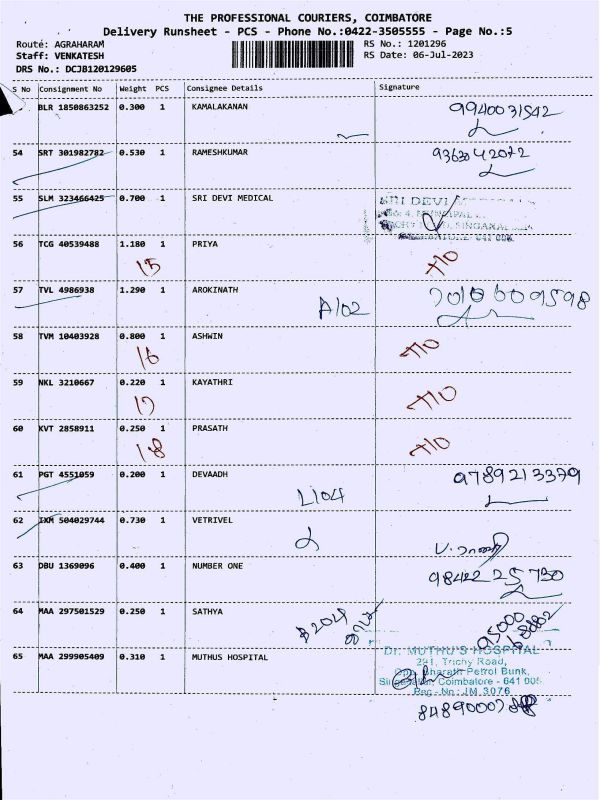 THE PROFESSIONAL COURIERS, COIMBATORE
Delivery Runsheet - PCS - Phone No.:0422-3505555 - Page No.:5
Route: AGRAHARAM RS No.: 1201296
Staff: VENKATESH RS Date: 06-Jul-2023
DRS No.: DCJB120129605
S No Consignment No Weight PCS Consignee Details Signature
BLR 1850863252 0.300 1 KAMALAKANAN 9940031542
54 SRT 301982782 0.530 1 RAMESHKUMAR 9363042072
55 SLM 323466425 0.700 1 SRI DEVI MEDICAL SRI DEVI
56 TCG 40539488 1.180 1 PRIYA
15
57 TVL 4986938 1.290 1 AROKINATH 7010609598
A102
58 TVM 10403928 0.800 1 ASHWIN
16
59 NKL 3210667 0.220 1 KAYATHRI
17
60 KVT 2858911 0.250 1 PRASATH
18
61 PGT 4551059 0.200 1 DEVAADH 9789213379
L104
62 IXM 504029744 0.730 1 VETRIVEL
63 DBU 1369096 0.400 1 NUMBER ONE 98422 25730
64 MAA 297501529 0.250 1 SATHYA
65 MAA 299905409 0.310 1 MUTHUS HOSPITAL
Dr. MUTHU'S HOSPITAL
291, Trichy Road,
Opp. Bharath Petrol Bunk,
Coimbatore - 641 005.
Reg - No : JM 3076